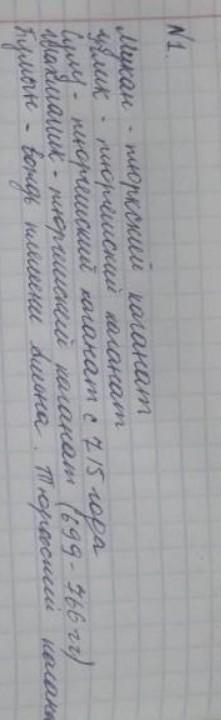 N1.
Мукан - тюркский каганат
Узлик - тюргешский каганат
Сулу - тюргешский каганат с 715 года
- тюргешский каганат (699-766 гг)
Бумын - вождь племени Ашина. Тюркский кагана